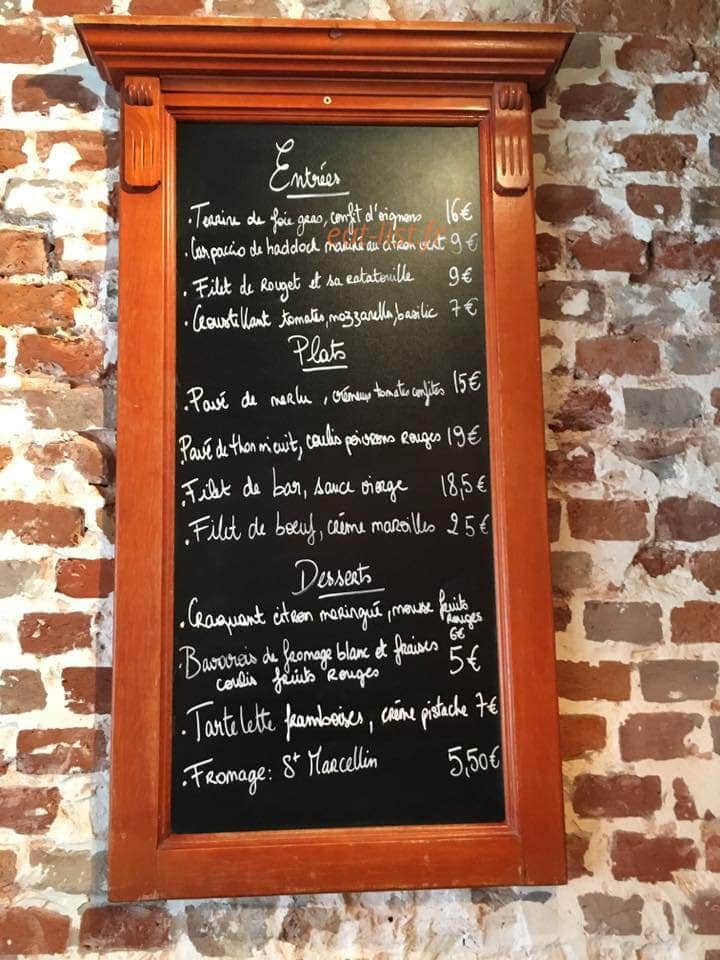 Entrées
. Terrine de foie gras, confit d'oignons 16€
Carpaccio de haddock mariné au citron vert 9€
eat-list.fr
. Filet de Rouget et sa Ratatouille 9€
. Croustillant tomates, mozzarella, basilic 7€
Plats
. Pavé de merlu, crémeux tomates confites 15€
Pavé de thon mi cuit, coulis poivrons Rouges 19€
. Filet de bar, sauce vierge 18,5€
. Filet de bœuf, crème maroilles 25€
Desserts
. Craquant citron meringué, mousse fruits
Rouges
6€
Bavarois de fromage blanc et fraises 5€
coulis fruits Rouges
. Tartelette framboises, crème pistache 7€
. Fromage: St Marcellin 5,50€